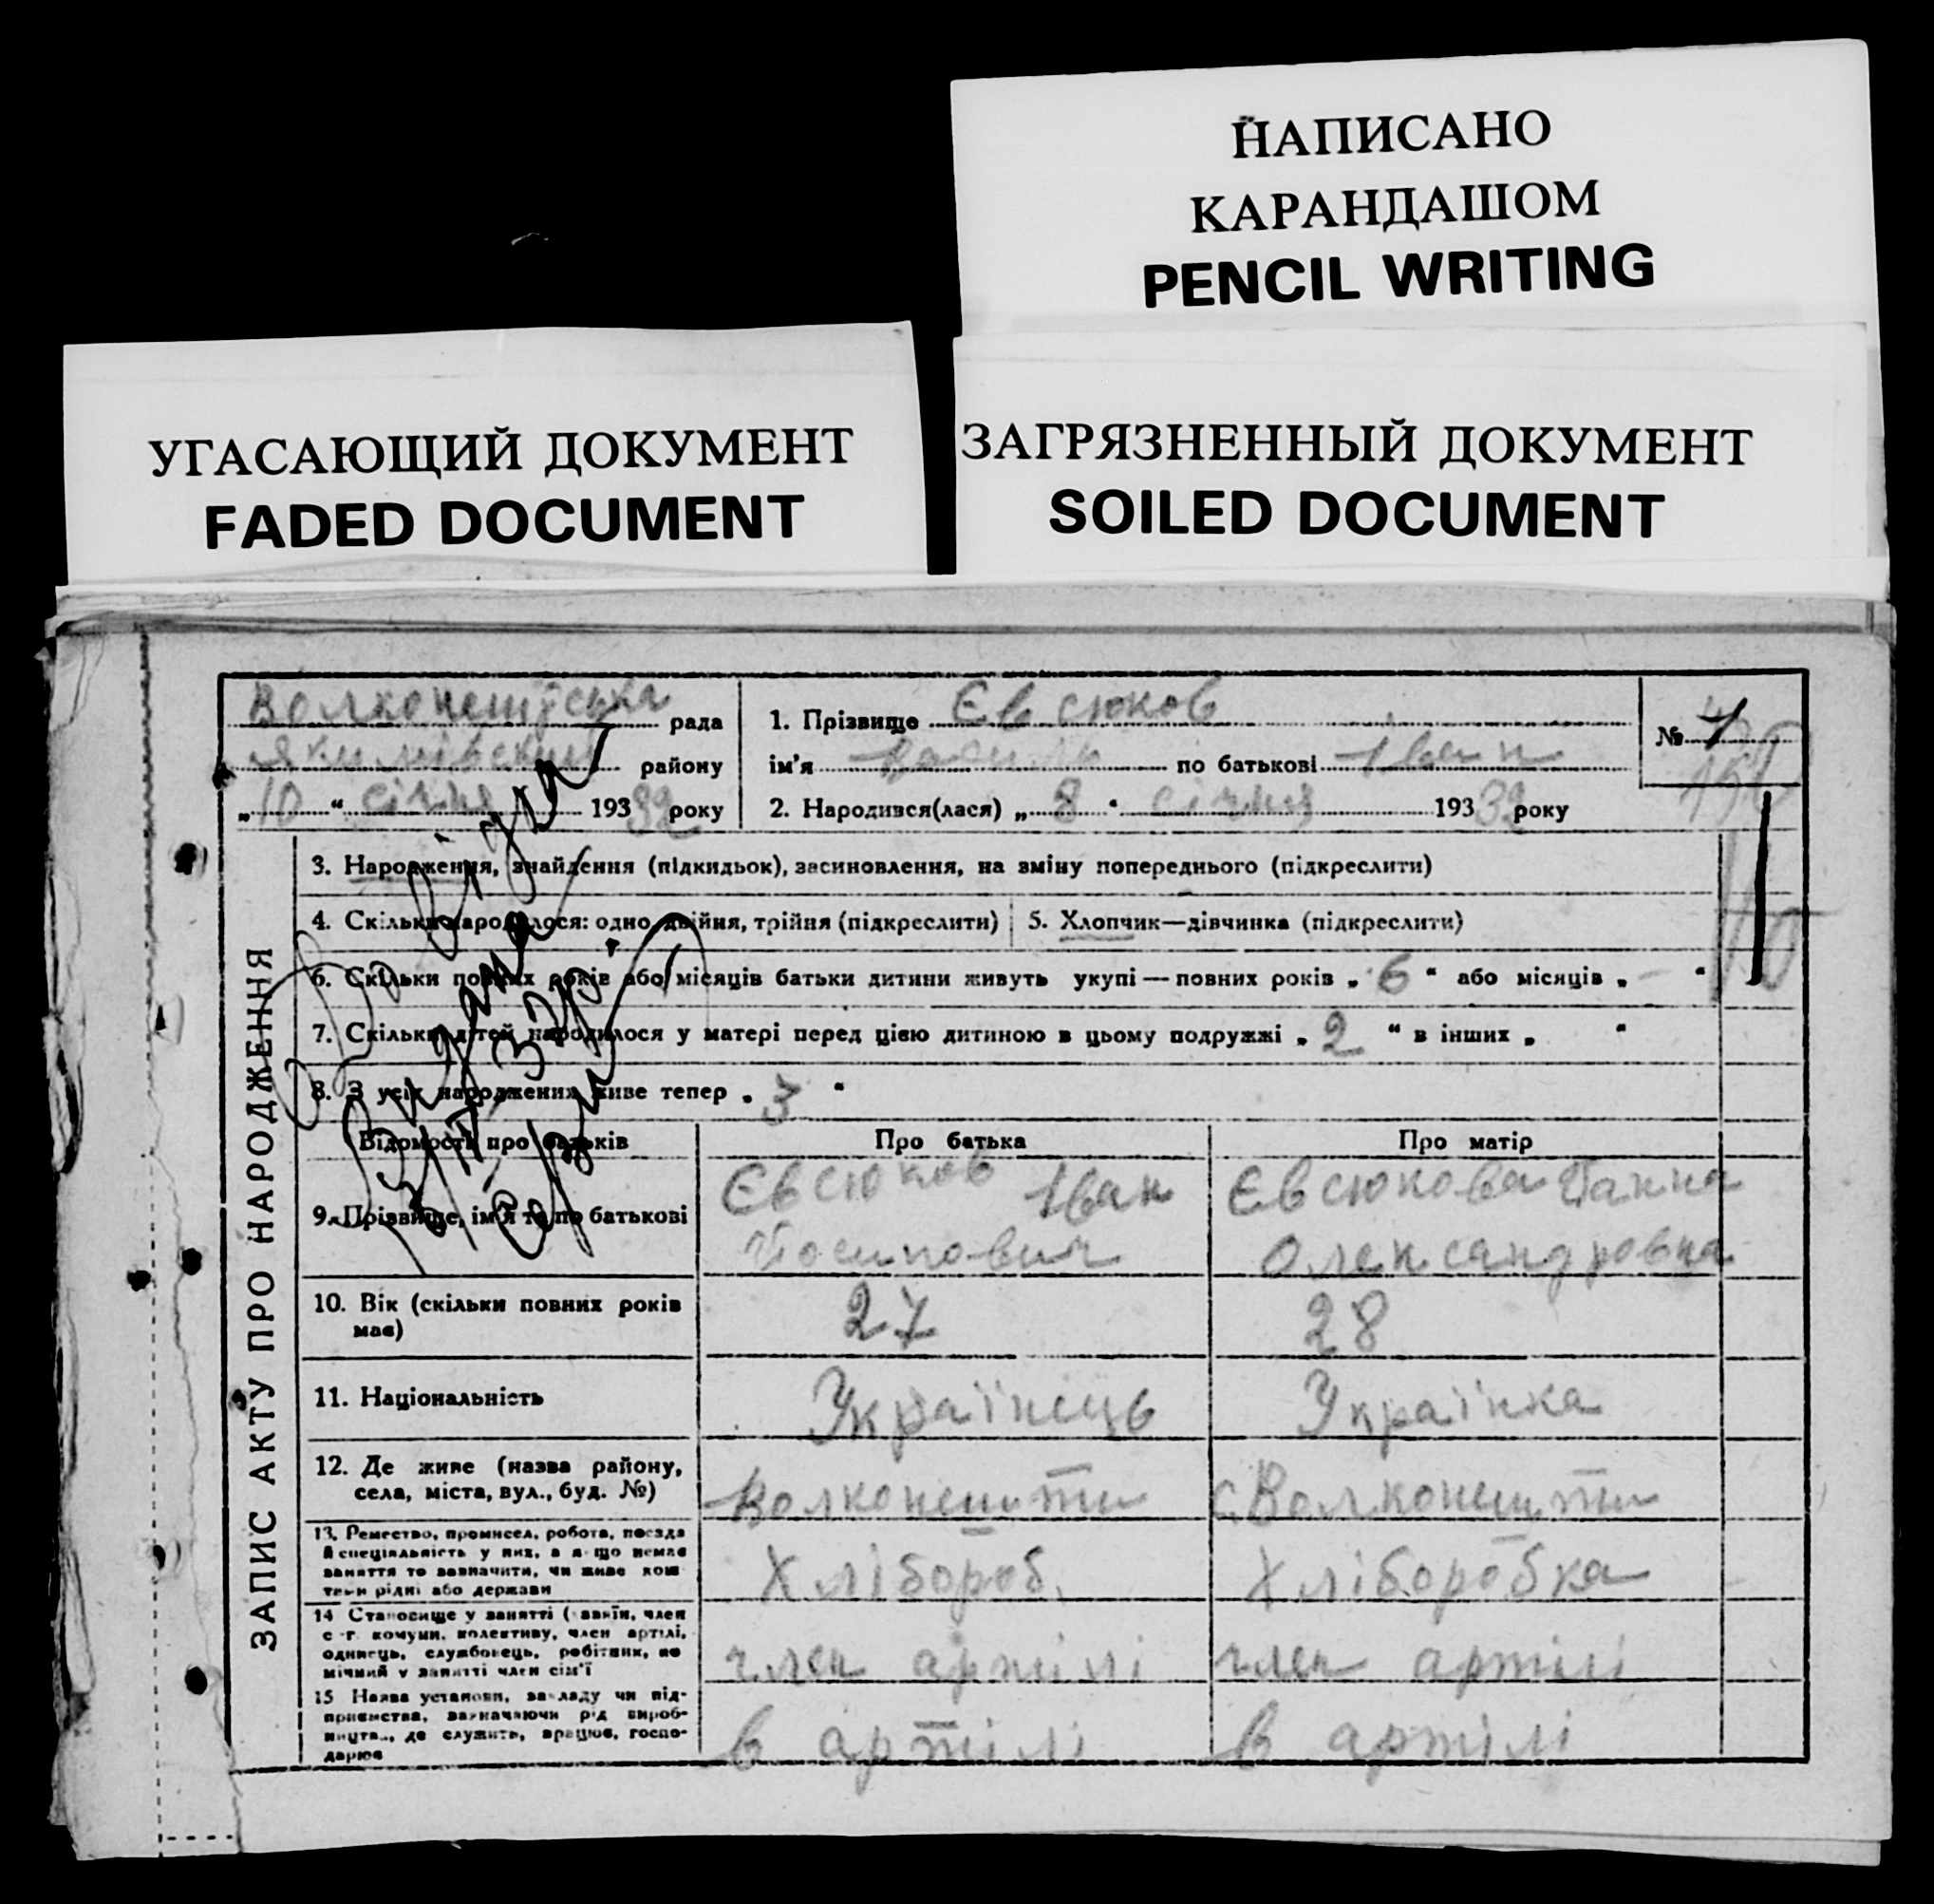 НАПИСАНО
КАРАНДАШОМ
PENCIL WRITING
УГАСАЮЩИЙ ДОКУМЕНТ
FADED DOCUMENT
ЗАГРЯЗНЕННЫЙ ДОКУМЕНТ
SOILED DOCUMENT
ЗАПИС АКТУ ПРО НАРОДЖЕННЯ
Волконештська рада
району
„10“ січня 19332 року
1. Прізвище Євсюков
ім'я по батькові Іван
2. Народився(лася) „8“ січня 19332 року
№ 7
3. Народження, знайдення (підкидьок), засиновлення, на зміну попереднього (підкреслити)
4. Скільки народилося: одно, двійня, трійня (підкреслити)
5. Хлопчик—дівчинка (підкреслити)
6. Скільки повних років або місяців батьки дитини живуть укупі — повних років „6“ або місяців „—“
7. Скільки дітей народилося у матері перед цією дитиною в цьому подружжі „2“ в інших „ “
8. З усіх народжених живе тепер „3“
Відомості про батьків
Про батька
Про матір
9. Прізвище, ім'я та по батькові
Євсюков Іван
Йосипович
Євсюкова Ганна
Олександровна
10. Вік (скільки повних років має)
27
28
11. Національність
Українець
Українка
12. Де живе (назва району, села, міста, вул., буд. №)
Волконешти
с. Волконешти
13. Ремество, промисел, робота, посада й спеціяльність у них, а якщо немає заняття то зазначити, чи живе коштами рідні або держави
Хлібороб
Хліборобка
14 Становище у занятті (хазяїн, член с.-г. комуни, колективу, член артілі, одинець, службовець, робітник, помічний у занятті член сім'ї
член артілі
член артілі
15 Назва установи, закладу чи підприємства, зазначаючи рід виробництва, де служить, працює, господарює
в артілі
в артілі